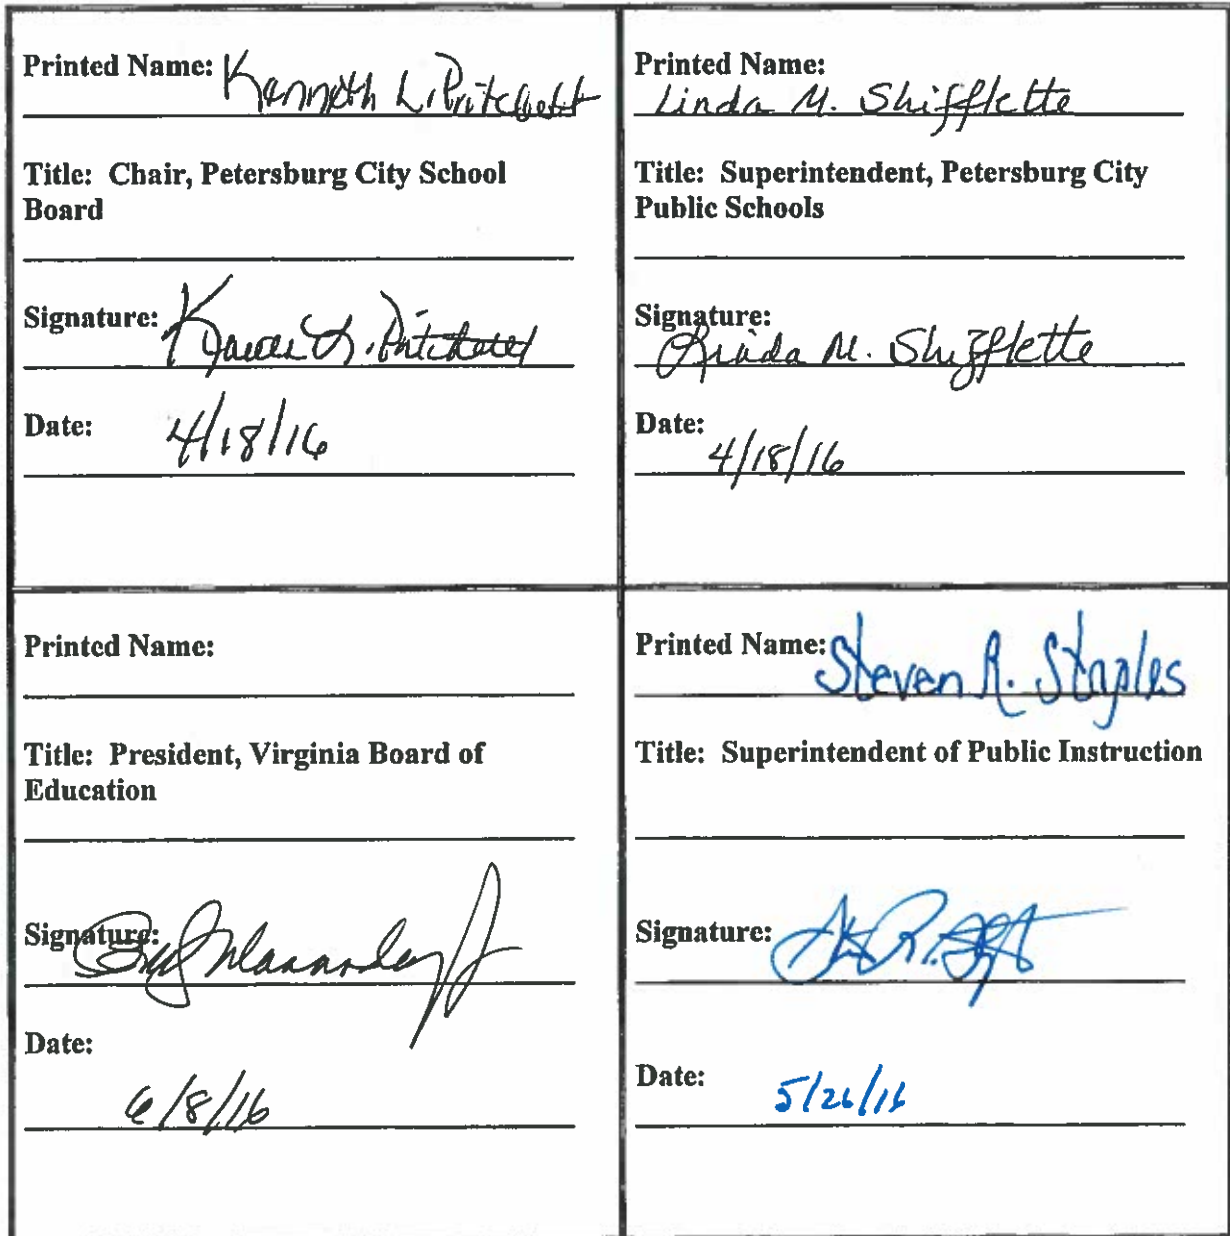 Printed Name: Kenneth L. Pritchett
Title: Chair, Petersburg City School
Board
Signature: L. Pritchett
Date: 4/18/16
Printed Name:
Linda M. Shifflette
Title: Superintendent, Petersburg City
Public Schools
Signature:
Linda M. Shifflette
Date:
4/18/16
Printed Name:
Title: President, Virginia Board of
Education
Signature:
Date:
6/8/16
Printed Name: Steven R. Staples
Title: Superintendent of Public Instruction
Signature:
Date: 5/26/16